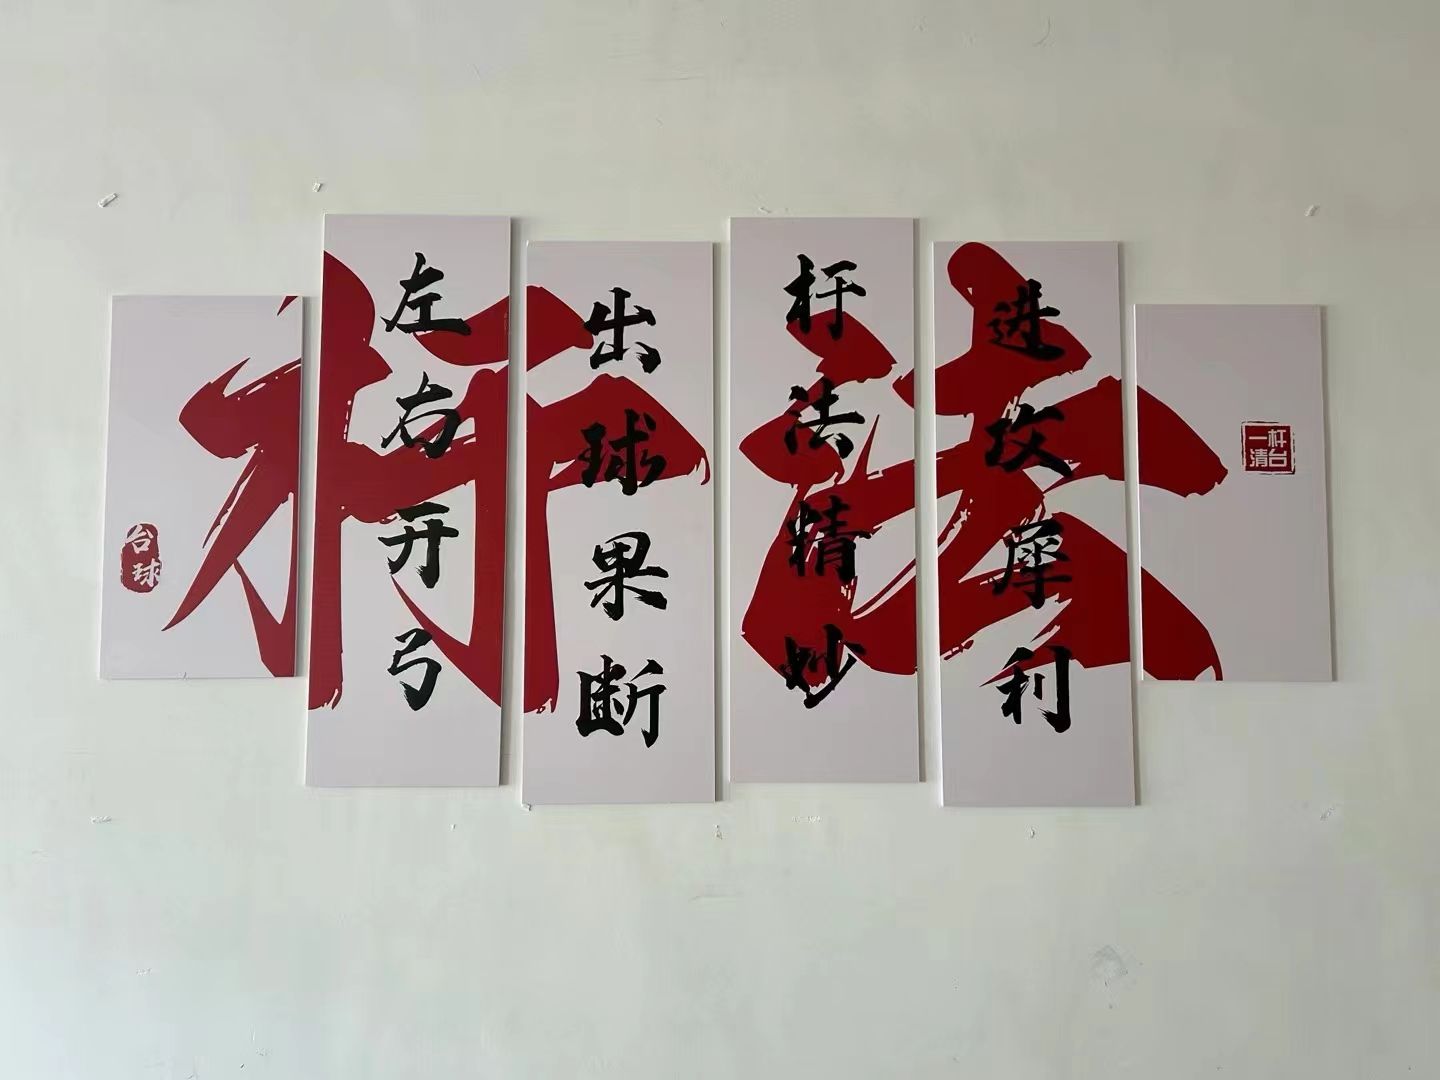 杆法
台球
左右开弓
出球果断
杆法精妙
进攻犀利
一杆
清台